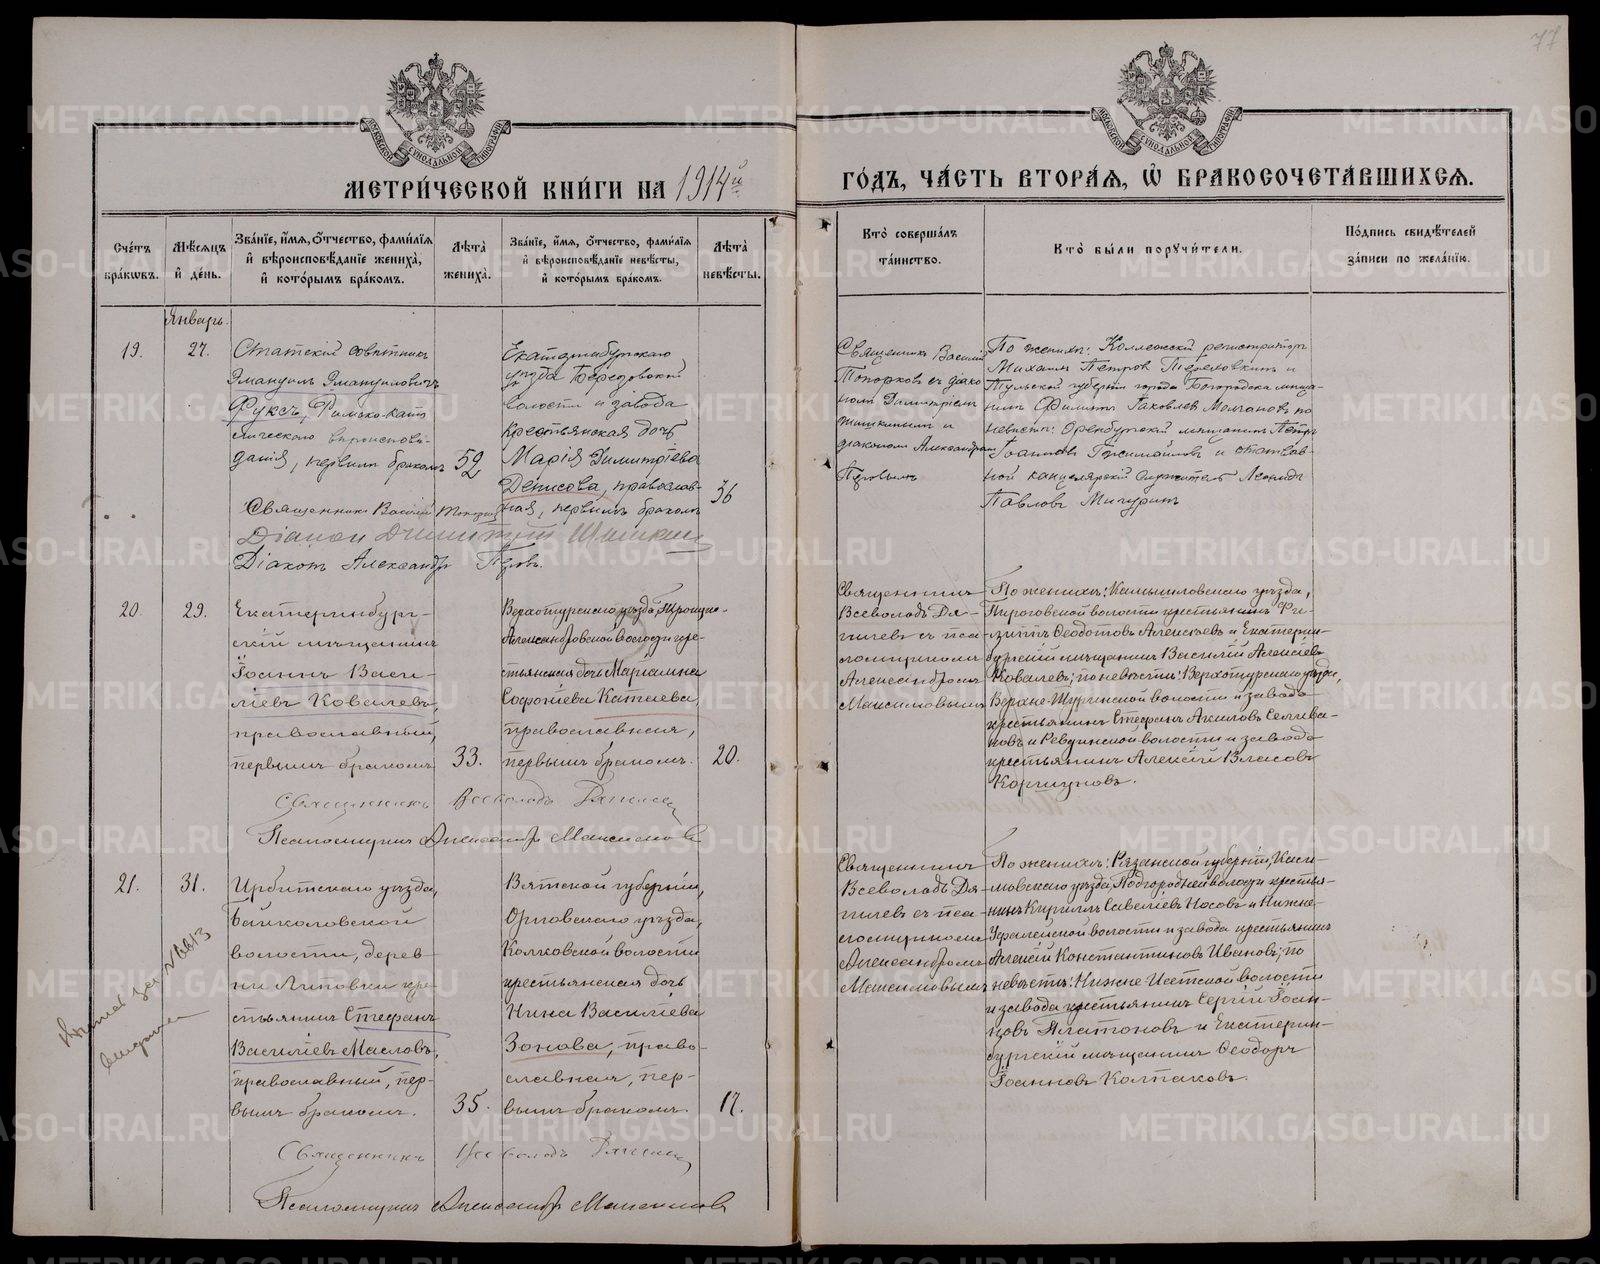 77
МОСКОВСКОЙ СУНОДАЛЬНОЙ ТИПОГРАФІИ
МОСКОВСКОЙ СУНОДАЛЬНОЙ ТИПОГРАФІИ
МЕТРИ́ЧЕСКОЙ КНИ́ГИ НА 1914й
ГО́ДЪ, ЧА́СТЬ ВТОРА́Я, Ѡ҆ БРАКОСОЧЕТА́ВШИХСЯ.
Сче́тъ бра́ковъ.
Мѣ́сяцъ и҆ де́нь.
Зва́нїе, и҆́мя, ѻ҆́тчество, фами́лїя и҆ вѣроисповѣ́данїе жениха̀, и҆ кото́рымъ бра́комъ.
Лѣ́та жениха̀.
Зва́нїе, и҆́мя, ѻ҆́тчество, фами́лїя и҆ вѣроисповѣ́данїе невѣ́сты, и҆ кото́рымъ бра́комъ.
Лѣ́та невѣ́сты.
Кто̀ соверша́лъ та́инство.
Кто̀ бы́ли поручи́тели.
По́дпись свидѣ́телей за́писи по жела́нїю.
Январь.
19.
27.
Статскій совѣтникъ
Эмануилъ Эмануиловичъ
Фуксъ, Римско-като
лическаго вѣроисповѣ-
данія, первымъ бракомъ
52
Екатеринбургскаго
уѣзда Березовской
волости и завода
крестьянская дочь
Марія Димитріева
Денисова, православ-
ная, первымъ бракомъ
36
Священникъ Василій
Топорковъ съ діако
номъ Димитріемъ
Шишкинымъ и
діакономъ Александромъ
По женихѣ: Коллежскій регистраторъ
Михаилъ Петровъ и
Тульской губерніи города Богородска мѣща-
нинъ Филиппъ Яковлевъ Молчановъ по
невѣстѣ: Оренбургскій мѣщанинъ Петръ
Іоанновъ и
ной канцелярскій служитель Леонидъ
Павловъ Мичуринъ
Священникъ Василій Топорковъ
Діаконъ Димитрій Шишкинъ
Діаконъ Александръ
20.
29.
Екатеринбург-
скій мѣщанинъ
Іоаннъ Васи-
ліевъ Ковалевъ,
православный,
первымъ бракомъ
33.
Верхотурскаго уѣзда, Троицко-
Александровской волости кре-
стьянская дочь Маріамна
Софоніева Катаева,
православная,
первымъ бракомъ.
20.
Священникъ
Всеволодъ Дя-
гилевъ съ пса-
ломщикомъ
Александромъ
Максимовымъ
По женихѣ: Камышловскаго уѣзда,
Пироговской волости крестьянинъ Фи-
липпъ Ѳеодотовъ Алексѣевъ и Екатерин-
бургскій мѣщанинъ Василій Алексѣевъ
Ковалевъ; по невѣстѣ: Верхотурскаго уѣзда,
Верхне-Туринской волости и завода
крестьянинъ Стефанъ Акиловъ Селива-
новъ и Ревдинской волости и завода
крестьянинъ Алексій Власовъ
Коршуновъ.
Священникъ Всеволодъ Дягилевъ
Псаломщикъ Александръ Максимовъ
21.
31.
Ирбитскаго уѣзда,
Байкаловской
волости, дерев-
ни Липовки кре-
стьянинъ Стефанъ
Василіевъ Масловъ,
православный, пер-
вымъ бракомъ.
35.
Вятской губерніи,
Орловскаго уѣзда,
Колковской волости
крестьянская дочь
Нина Василіева
Зонова, право-
славная, пер-
вымъ бракомъ.
17.
Священникъ
Всеволодъ Дя-
гилевъ съ пса-
ломщикомъ
Александромъ
Максимовымъ
По женихѣ: Рязанской губерніи, Каси-
мовскаго уѣзда, Подгородней волости крестья-
нинъ Кириллъ Савеліевъ Носовъ и Нижне-
Уфалейской волости и завода крестьянинъ
Алексій Константиновъ Ивановъ; по
невѣстѣ: Нижне-Исетской волости
и завода крестьянинъ Сергій Іоан-
новъ Платоновъ и Екатерин-
бургскій мѣщанинъ Ѳеодоръ
Іоанновъ Колпаковъ.
Священникъ Всеволодъ Дягилевъ
Псаломщикъ Александръ Максимовъ
METRIKI.GASO-URAL.RU